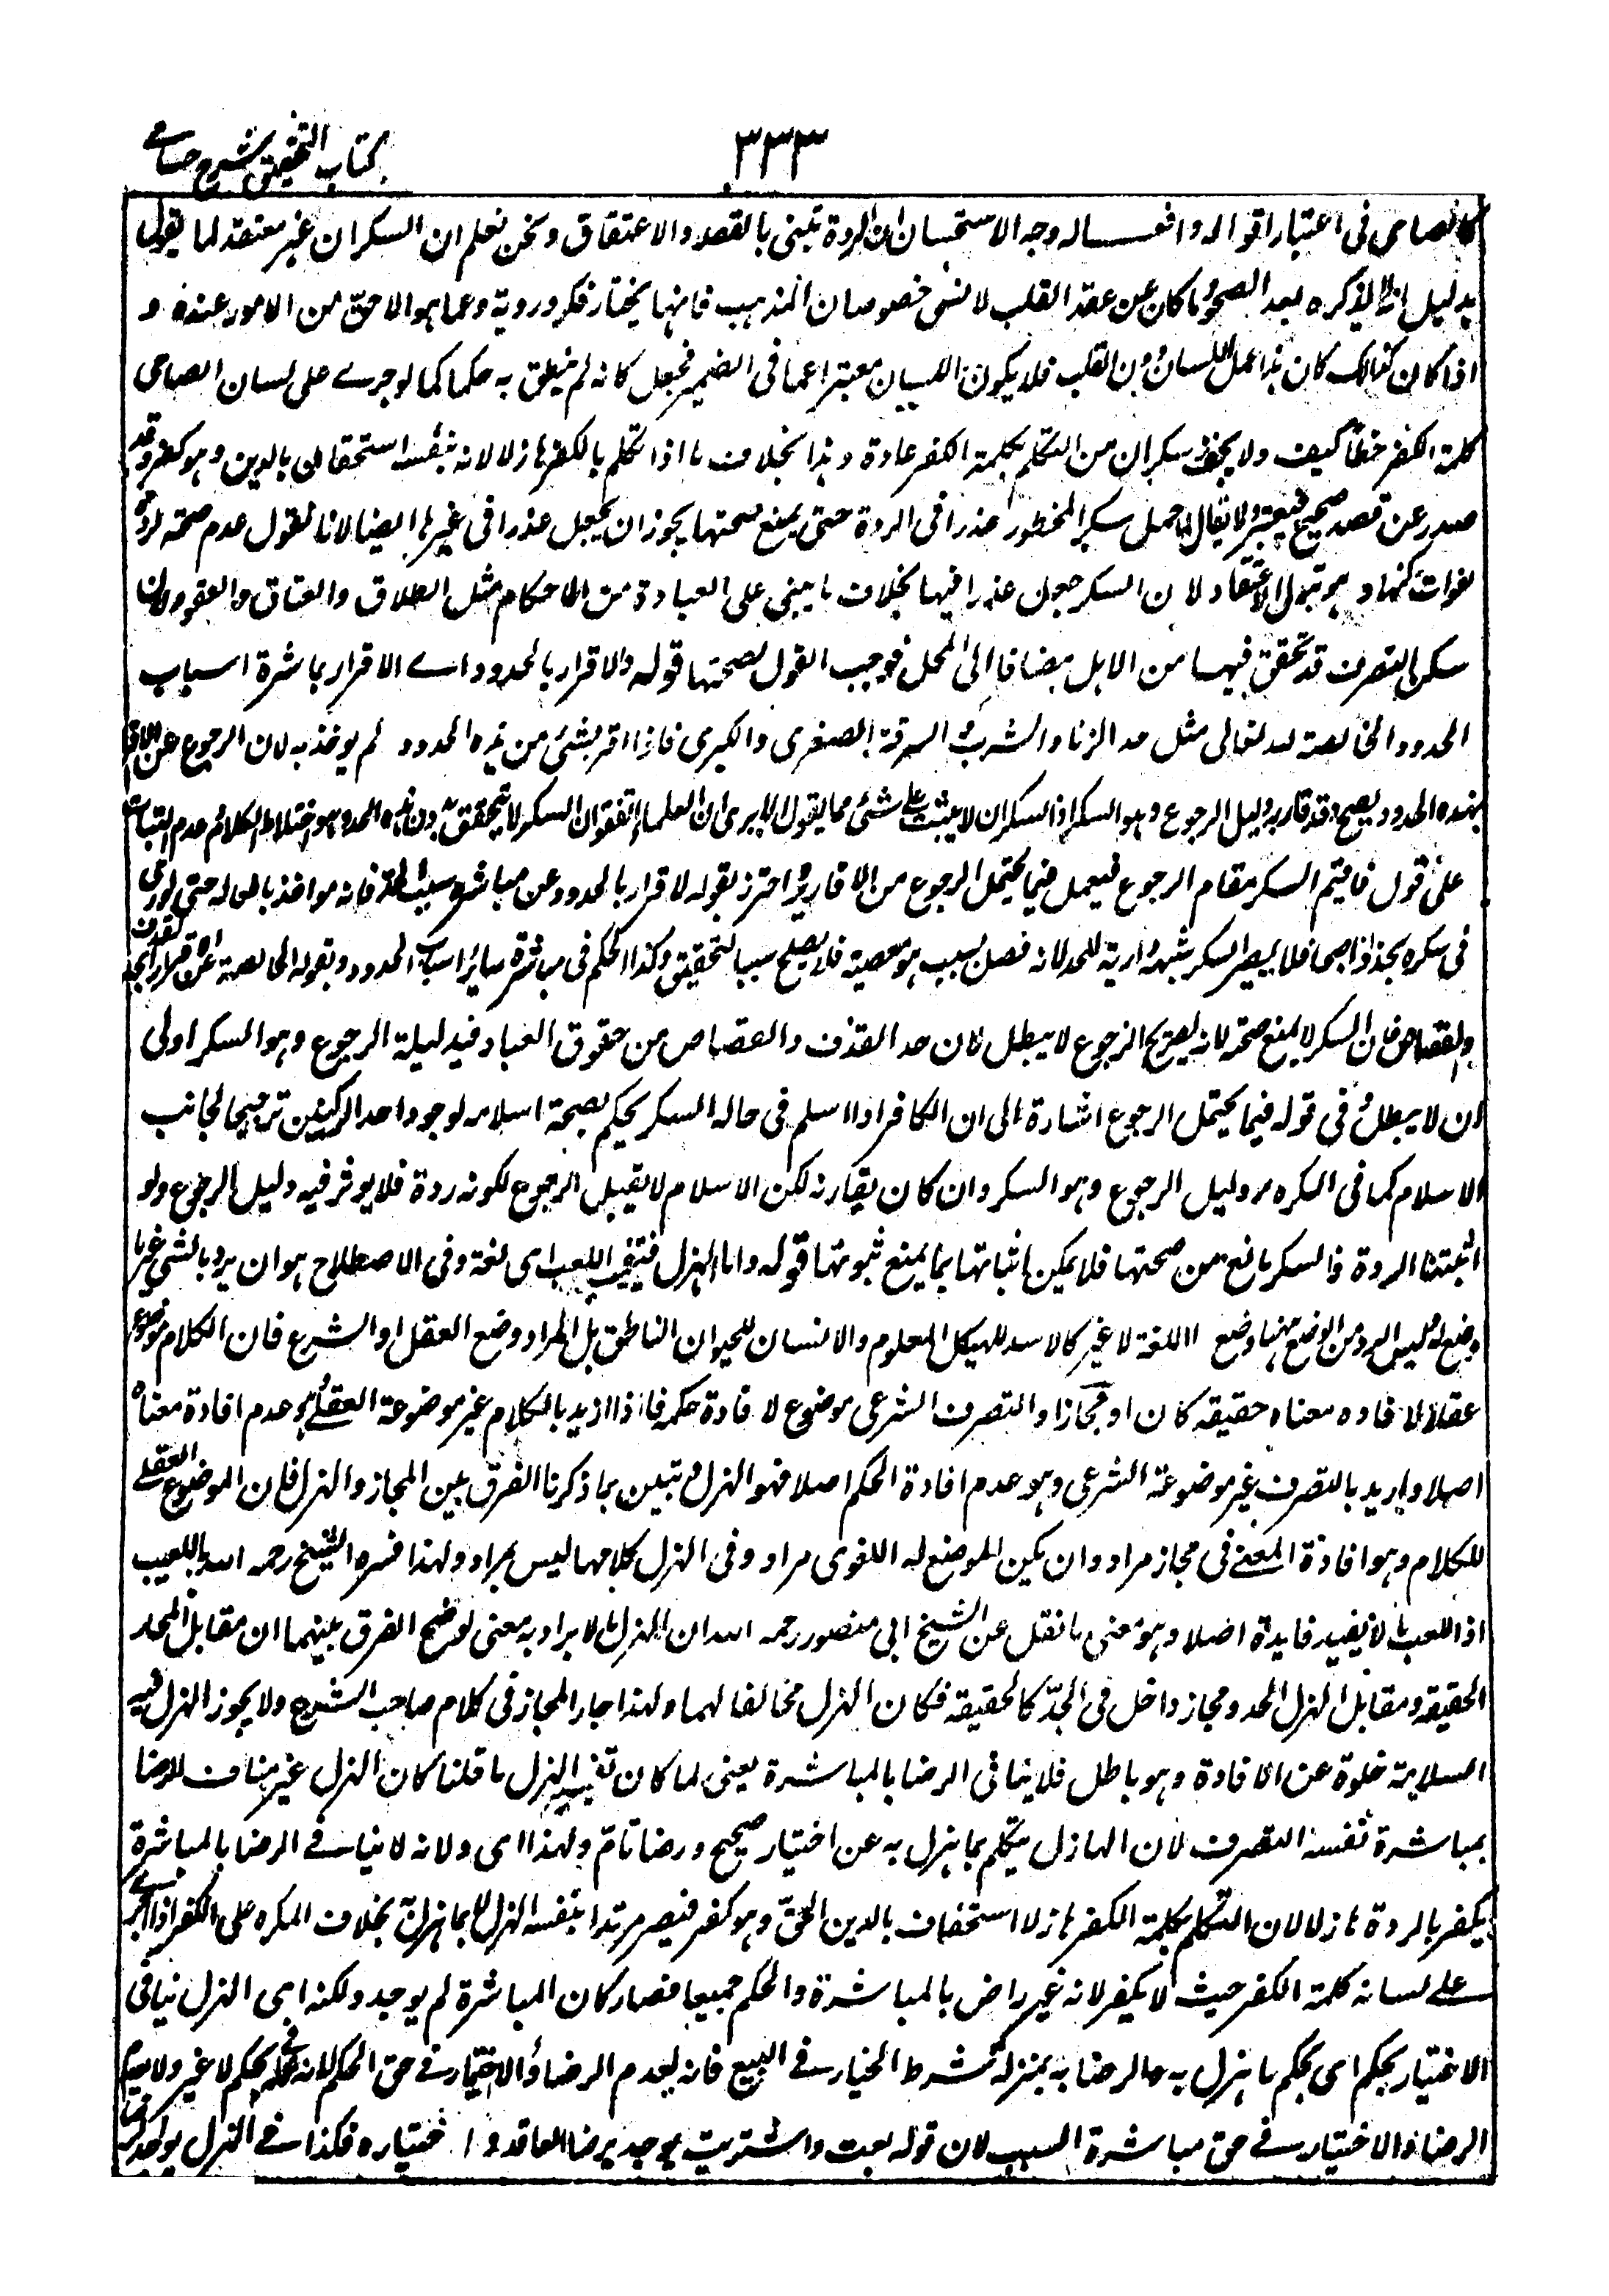 كتاب التحقيق شرح حسامي
٣٣٣
كالصاحي في اعتبار اقواله وافعاله وجه الاستحسان ان الردة تبتني بالقصد والاعتقاد ونحن نعلم ان السكران غير معتقد لما يقول
بدليل انه لا يذكره بعد الصحو وما كان عن عقد القلب لا ينسى خصوصا المذهب فانها يختار فكر وروية وعما هو الاحق من الامور عنده و
اذا كان كذلك كان هذا عمل اللسان دون القلب فلا يكون اللسان معتبرا عما في الضمير فجعل كانه لم ينطق به حكما كما لو جرى على لسان الصاحي
كلمة الكفر خطأ كيف ولا ينجو سكران من التكلم بكلمة الكفر عادة وهذا بخلاف ما اذا تكلم بالكفر هازلا لانه بنفسه استخفاف بالدين وهو كفر وقد
صدر عن قصد صحيح فيعتبر ولا يقال لما جعل سكر المحظور عذرا في الردة حتى يمنع صحتها يجوز ان يجعل عذرا في غيرها ايضا لانا نقول عدم صحة الردة
لفوات ركنها وهو تبدل الاعتقاد لا ن السكر جعل عذرا فيها بخلاف ما يبنى على العبادة من الاحكام مثل الطلاق والعتاق والعقود لان
ركن التصرف قد تحقق فيها من الاهل مضافا الى المحل فوجب القول بصحتها قوله والاقرار بالحدود اے الاقرار بمباشرة اسباب
الحدود الخالصة لله تعالى مثل حد الزنا والشرب والسرقة الصغرى والكبرى فاذا اقر بشئ من هذه الحدود لم يوخذ به لان الرجوع عن الاقرار
بهذه الحدود يصح وقد قارنه دليل الرجوع وهو السكر اذ السكران لا يثبت على شئ مما يقول الا يرى ان العلماء اتفقوا ان السكر لا يتحقق بدون هذه الحد وهو اختلاط الكلام وعدم الثبات
على قول فاقيم السكر مقام الرجوع فيعمل فيما يحتمل الرجوع من الاقارير واحترز بقوله لاقرار بالحدود عن مباشرة سبب الحد فانه مواخذ بافعاله حتى لو زنى
في سكره يحد اذا صحا فلا يصير السكر شبهة دارية للحد لانه فصل بسبب هو معصية فلا يصلح سببا لتخفيف وكذا الحكم في مباشرة سائر اسباب الحدود وبقوله الخالصة عن اقرار بحد القذف
والقصاص فان السكر لا يمنع صحته لانه بصريح الرجوع لا يبطل لان حد القذف والقصاص من حقوق العباد فبدليلة الرجوع وهو السكر اولى
ان لا يبطل وفي قوله فيما يحتمل الرجوع اشارة الى ان الكافر اذا اسلم في حالة السكر يحكم بصحة اسلامه لوجود احد الركنين ترجيحا لجانب
الاسلام كما في المكره ودليل الرجوع وهو السكر وان كان يقارنه لكن الاسلام لا يقبل الرجوع لكونه ردة فلا يوثر فيه دليل الرجوع ولو
اثبتنا الردة فالسكر مانع من صحتها فلا يمكن اثباتها بما يمنع ثبوتها قوله واما الهزل فتفسيره اللعب اى لغة وفي الاصطلاح هو ان يراد بالشى غير ما
وضع له فليس المراد من الوضع ههنا وضع اللغة لا غير كالاسد للهيكل المعلوم والانسان للحيوان الناطق بل المراد وضع العقل او الشرع فان الكلام موضوع
عقلا لافادة معناه حقيقة كان او مجازا والتصرف الشرعي موضوع لافادة حكمه فاذا اريد بالكلام غير موضوعه العقلي وهو عدم افادة معناه
اصلا واريد بالتصرف غير موضوعه الشرعي وهو عدم افادة الحكم اصلا فهو الهزل وتبين بما ذكرنا الفرق بين المجاز والهزل فان الموضوع العقلي
للكلام وهو افادة المعنى في مجاز مراد وان يكن الموضع له اللغوى مراد وفي الهزل كلاهما ليس بمراد ولهذا فسره الشيخ رحمه الله باللعب
اذ اللعب ما لا يفيد فايدة اصلا وهو معنى ما نقل عن الشيخ ابي منصور رحمه الله ان الهزل ما لا يراد به معنى لوضح الفرق بينهما ان مقابل المجاز
الحقيقة ومقابل الهزل الجد ومجاز داخل في الجد كالحقيقة فكان الهزل مخالفا لهما ولهذا جاز المجاز في كلام صاحب الشرع ولا يجوز الهزل فيه
السلامة خلوة عن الافادة وهو باطل فلا ينافي الرضا بالمباشرة يعني لما كان تفسير الهزل ما قلنا كان الهزل غير مناف للرضا
بمباشرة نفسه التصرف لان الهازل يتكلم بما يهزل به عن اختيار صحيح ورضا تام ولهذا اى ولانه لا ينافى الرضا بالمباشرة
يكفر بالردة هازلا لان التكلم بكلمة الكفر هازلا استخفاف بالدين الحق وهو كفر فيصير مرتدا بنفس الهزل لا بما هزل به بخلاف المكره على الكفر اذا اجرى
على لسانه كلمة الكفر حيث لا يكفر لانه غير راض بالمباشرة والحكم جميعا فصار كان المباشرة لم يوجد ولكنه اى الهزل ينافي
الاختيار بحكم اى بحكم ما هزل به والرضا به بمنزلة شرط الخيار في البيع فانه يعدم الرضا والاختيار في حق الحكم لانه علق بالحكم لا غير ولا يعدم
الرضا والاختيار في حق مباشرة السبب لان قوله بعت واشتريت يوجد برضا العاقد واختياره فكذا في الهزل يوجد